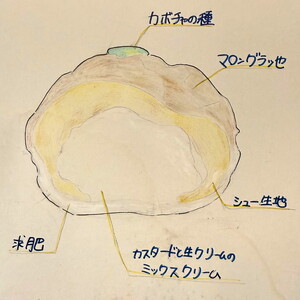 カボチャの種
マロングラッセ
シュー生地
求肥
カスタードと生クリームの
ミックスクリーム